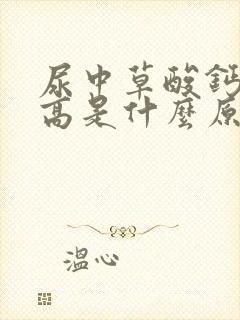 尿中草酸鈣
高是什麼原
溫心